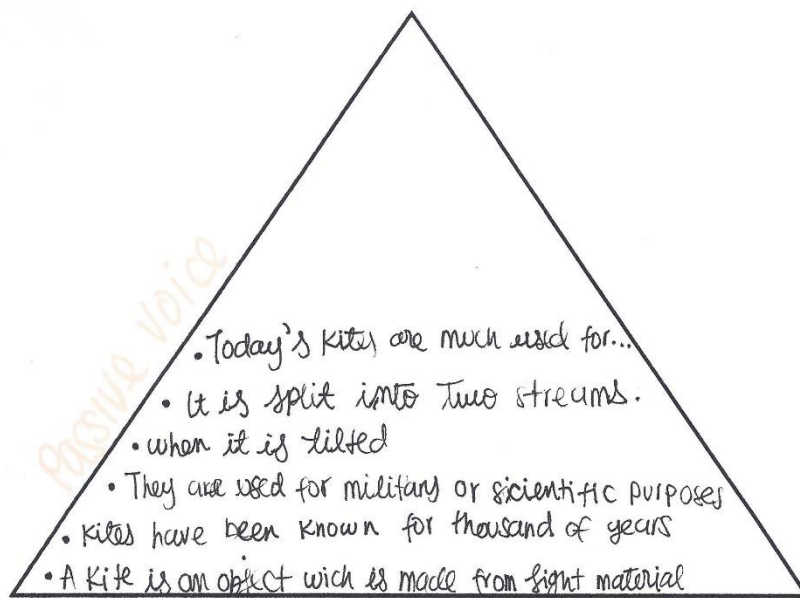 Passive voice
• Today's kites are much used for...
• It is split into two streams.
• when it is tilted
• They are used for military or sicientific purposes
• Kites have been known for thousand of years
• A kite is an object wich is made from light material